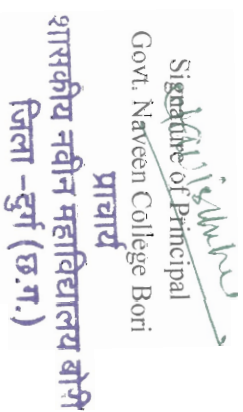 Signature of Principal
Govt. Naveen College Bori
प्राचार्य
शासकीय नवीन महाविद्यालय बोरी
जिला - दुर्ग (छ.ग.)